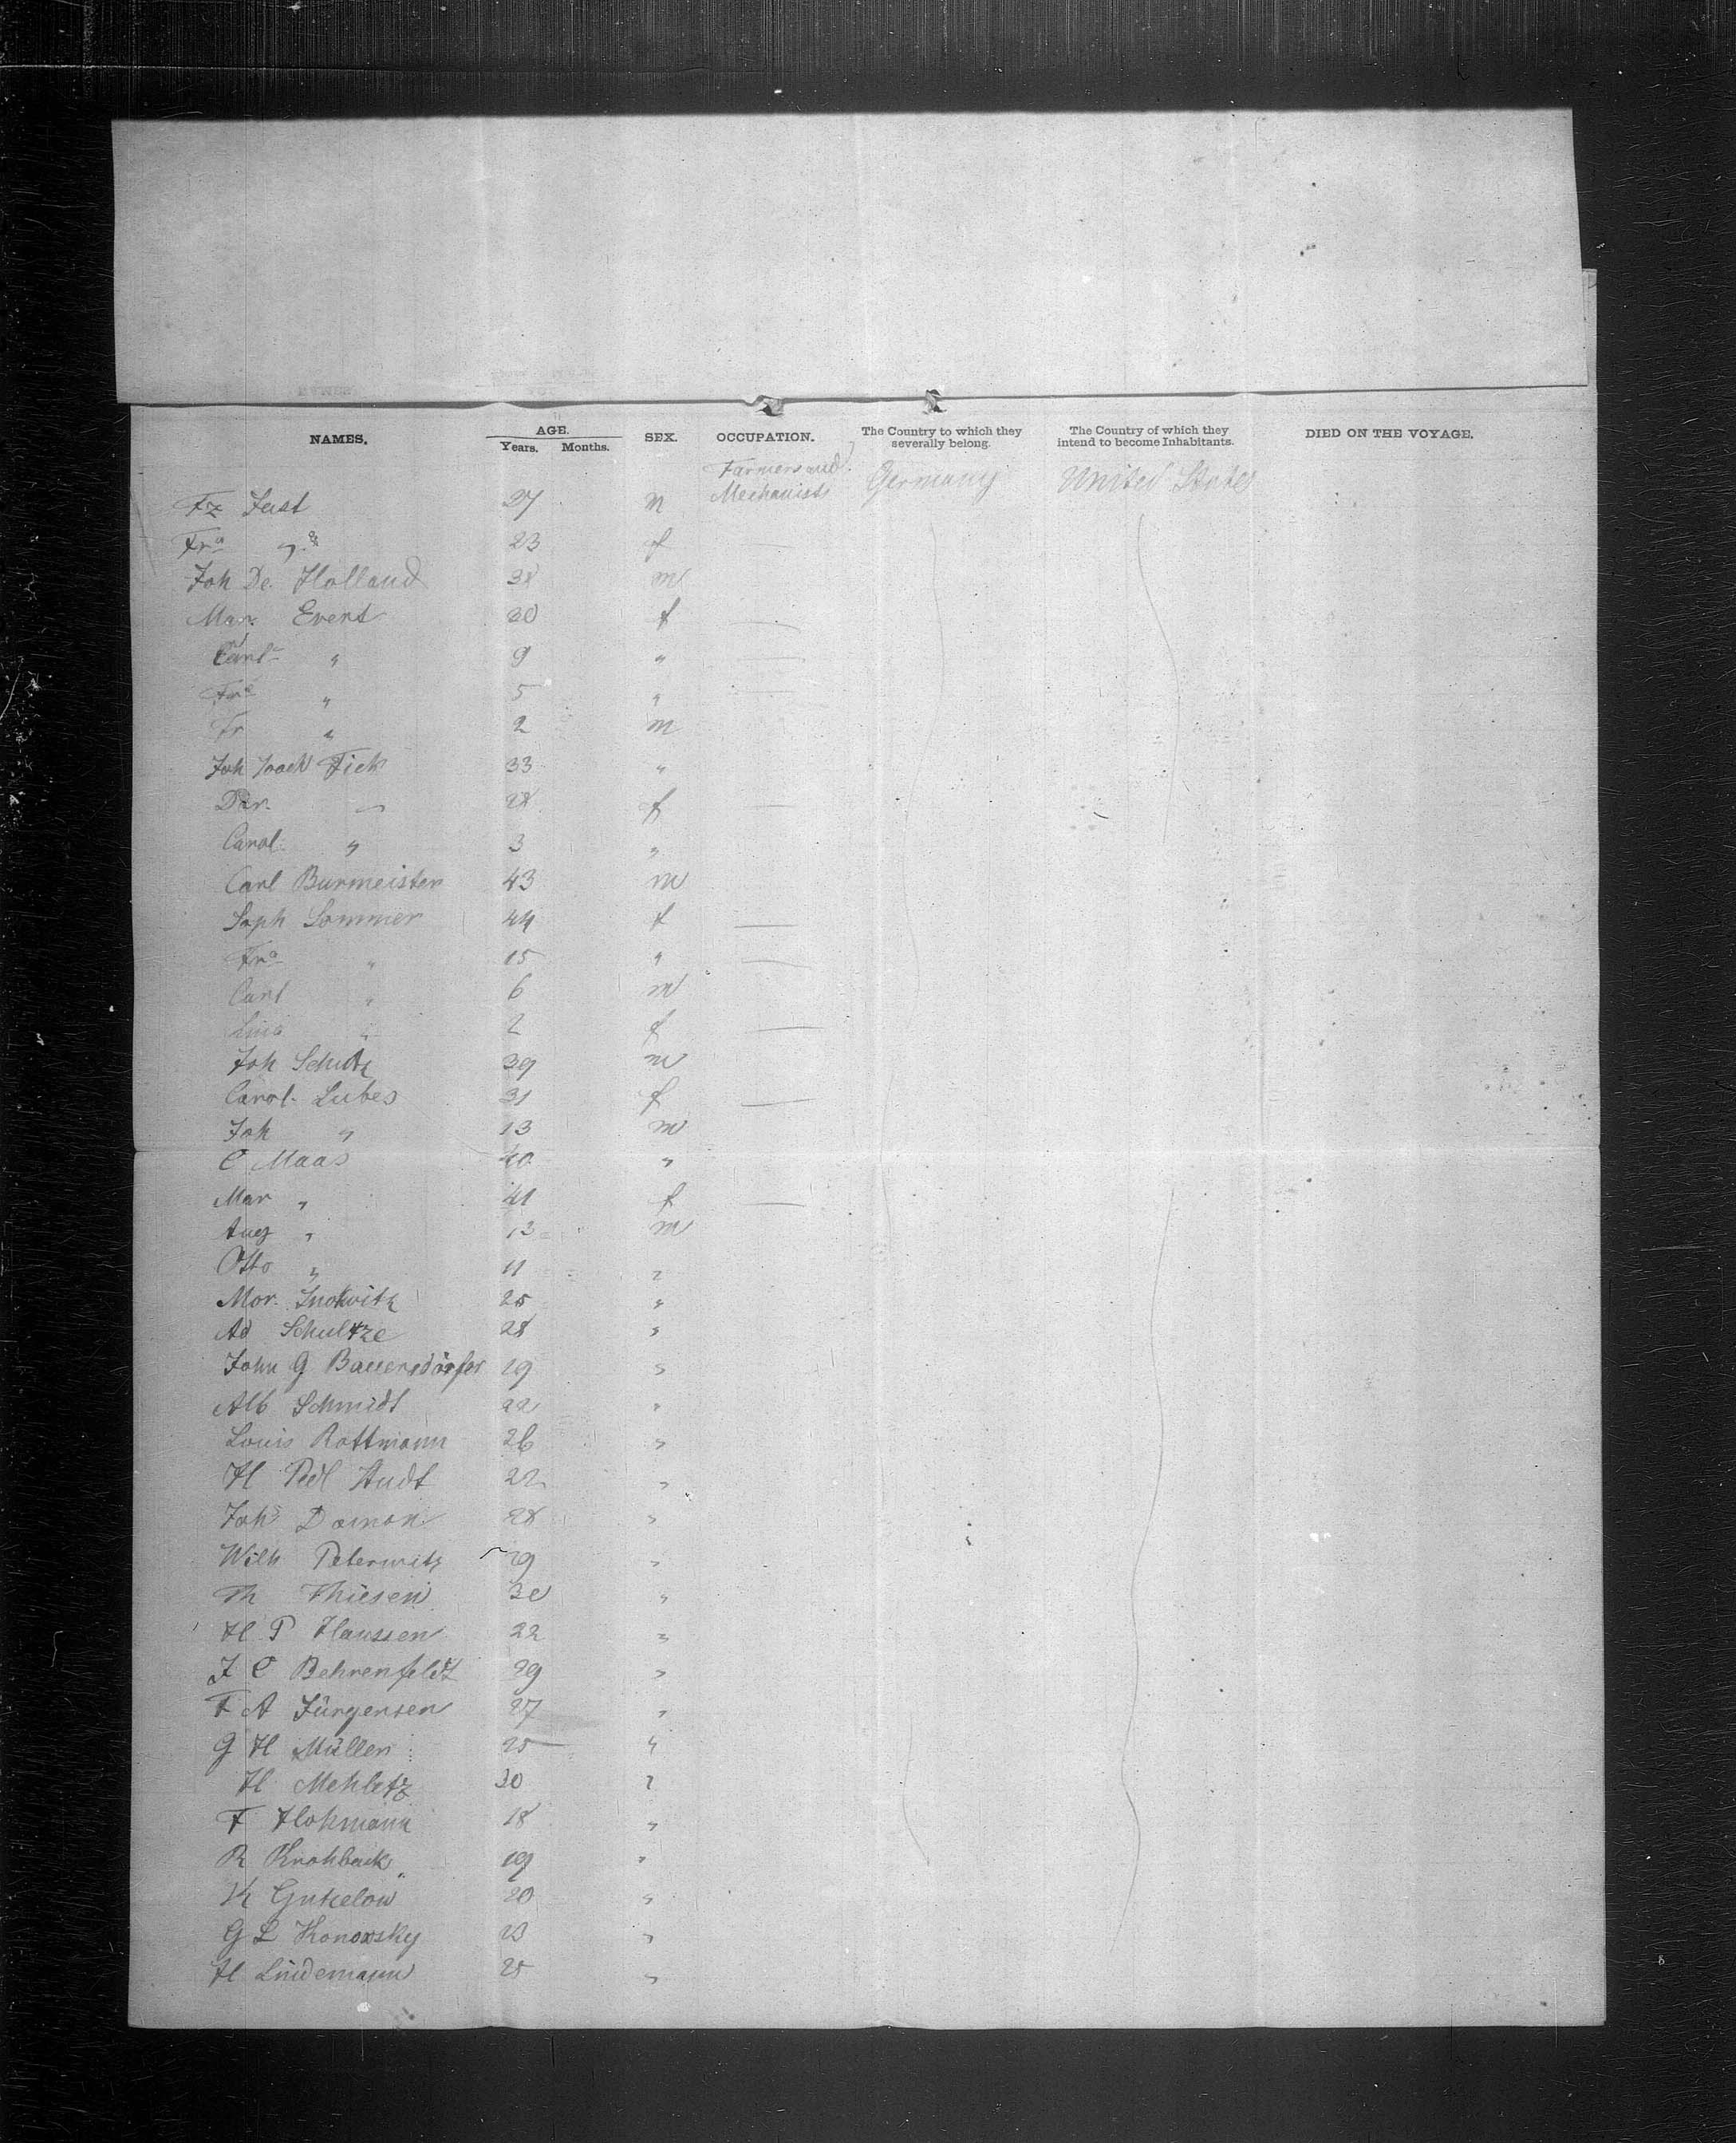 NAMES. AGE. SEX. OCCUPATION. The Country to which they severally belong. The Country of which they intend to become Inhabitants. DIED ON THE VOYAGE.
Years. Months.
Farmers and
Mechanists Germany United States
Fz Jast 27 m
Fra " 23 f —
Joh De. Holland 38 m
Mar. Evert 30 f —
Carl " 9 " —
Fra " 5 " —
Fr " 2 m
Joh Joach Fick 33 "
Dor. " 28 f —
Carol. " 3 "
Carl Burmeister 43 m
Soph Sommer 44 f —
Fra " 15 " —
Carl " 6 m
" 2 f —
Joh 39 m
Carol. Lubes 31 f —
Joh " 13 m
C Maas 40 "
Mar " 41 f —
Aug " 13 m
Otto " 11 "
Mor. 25 "
Ad Schultze 28 "
John G Bauersdorfer 29 "
Alb Schmidt 22 "
Louis Rottmann 26 "
H 22 "
Joh Damon 28 "
Wilh Peterwitz 29 "
Th Thiesen 30 "
H P Hanssen 22 "
J C Behrenfeldt 29 "
F A Jürgensen 27 "
G H Müller 25 "
H Mehletz 30 "
F Hohmann 18 "
R Krohback 19 "
K Gutzelow 20 "
G L Konorsky 23 "
H Lindemann 25 "